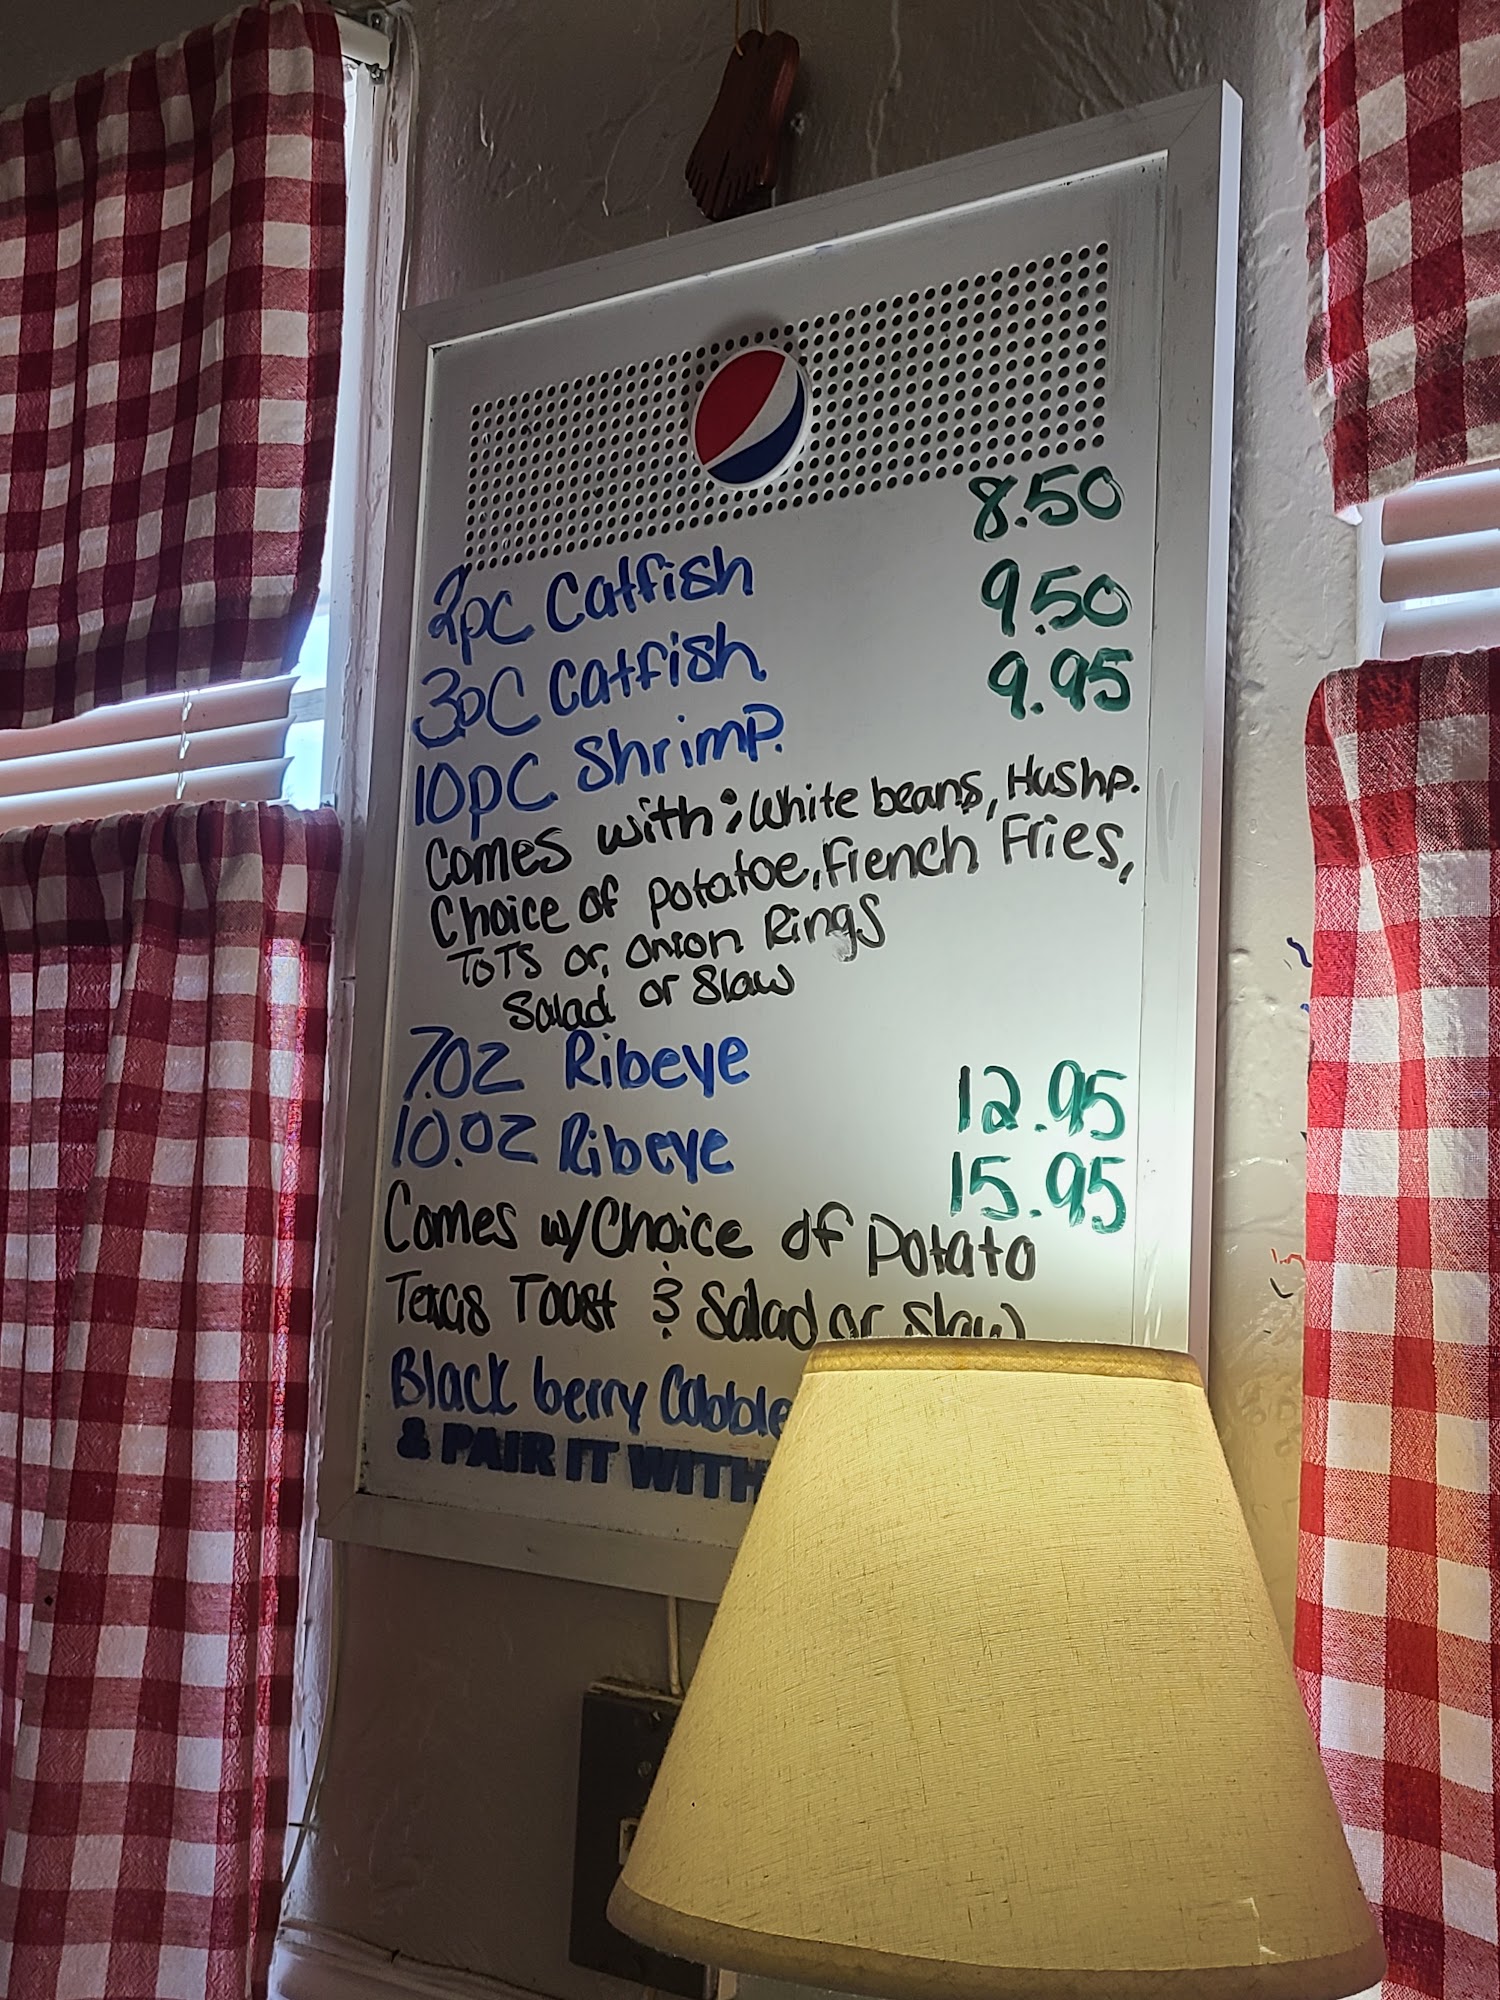 2pc Catfish 8.50
3pc Catfish 9.50
10pc Shrimp 9.95
Comes with; White beans, Hushp.
Choice of Potatoe, French Fries,
ToTS or Onion Rings
Salad or Slaw
7.0z Ribeye 12.95
10.0z Ribeye 15.95
Comes w/Choice of Potato
Texas Toast & Salad or Slaw
Black berry
& PAIR IT WITH